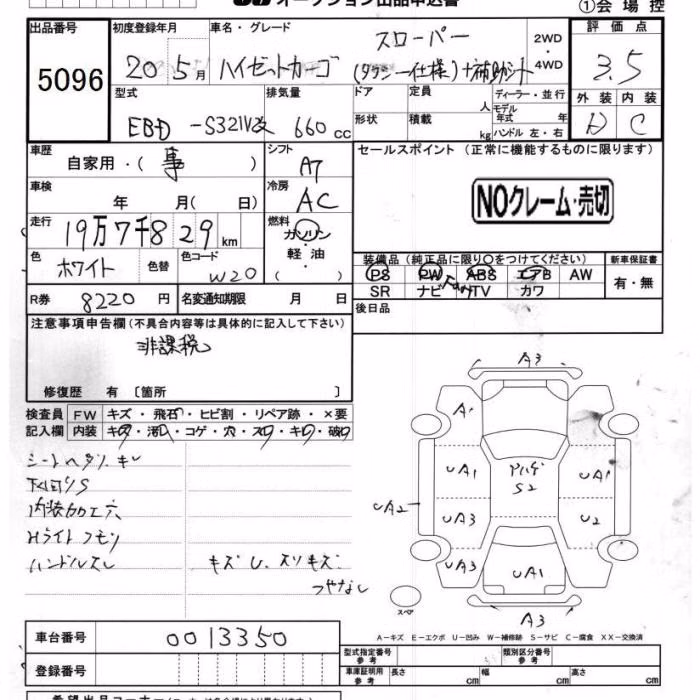 オークション出品申込書
①会場控
出品番号
5096
初度登録年月
20 5月
車名・グレード
スローパー
ハイゼットカーゴ
(タクシー仕様)+補助シート
2WD
4WD
評価点
3.5
型式
EBD-S321V改
排気量
660cc
ドア
形状
定員 人
積載 kg
ディーラー・並行
モデル年式 年
ハンドル 左・右
外装 内装
D C
車歴
自家用・(事)
シフト
A7
車検
年 月( 日)
冷房
AC
走行
19万7千829km
燃料
ガソリン
軽油
( )
色
ホワイト
色替
色コード
W20
R券
8220円
名変通知期限 月 日
セールスポイント (正常に機能するものに限ります)
NOクレーム・売切
装備品(純正品に限り○をつけてください)
新車保証書
PS PW ABS エアB AW
SR ナビ TV カワ
有・無
後日品
注意事項申告欄(不具合内容等は具体的に記入して下さい)
非課税
修復歴 有〔箇所 〕
検査員 FW キズ・飛石・ヒビ割・リペア跡・×要
記入欄 内装 キズ・汚レ・コゲ・穴・スレ・キレ・破レ
シートヘタリ、キレ
下回りS
内装加工穴
Hライトクモリ
ハンドルスレ
キズU、スリキズ
つやなし
A3
A1
UA1
UA1
UA2
UA3
U2
UA3
UA1
S2
A3
スペア
A−キズ E−エクボ U−凹み W−補修跡 S−サビ C−腐食 XX−交換済
車台番号
0013350
登録番号
型式指定番号 参考
類別区分番号 参考
車庫証明用 参考
長さ cm
幅 cm
高さ cm